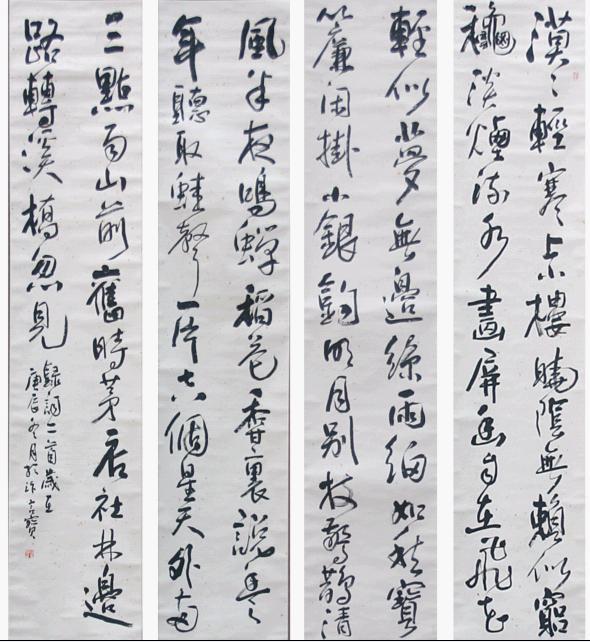 漠〻輕寒上小樓曉陰無賴似窮
龝淡煙流水畫屏幽自在飛花
輕似夢無邊絲雨細如愁寶
簾閑掛小銀鈎明月別枝驚鵲清
風半夜鳴蟬稻花香裏說豐
年聽取蛙聲一片七八個星天外兩
三點雨山前舊時茅店社林邊
路轉溪橋忽見
錄詞二首歲在
庚辰冬月於